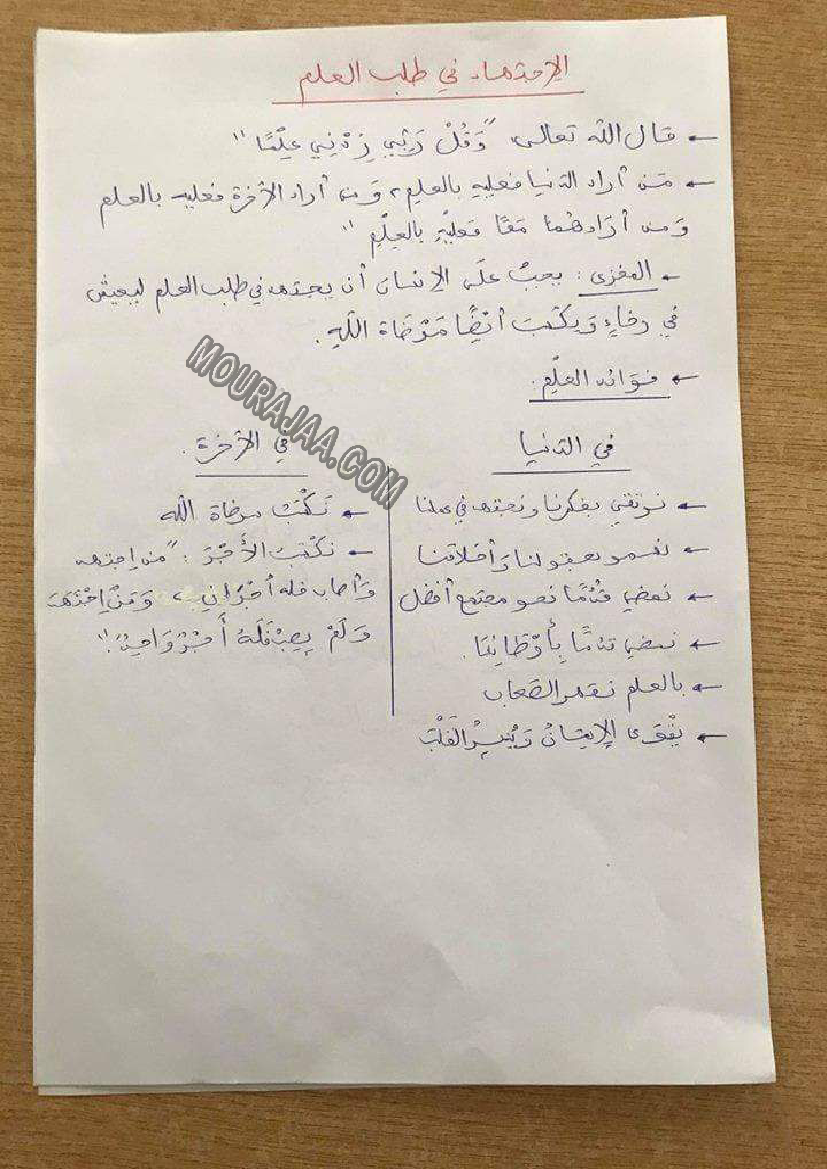 الإجتهاد في طلب العلم
← قال الله تعالى "وَقُلْ رَبِّي زِدْنِي عِلْمًا"
← مَن أراد الدنيا فعليهِ بالعلم، وَمن أراد الأخرة فعليه بالعلم
وَمن أرَادهُما مَعًا فعَليْهِ بالعِلْمِ"
- المغزى: يجبُ علَى الإنسان أن يجتهد في طلب العلم ليعيش
في رخاءٍ وَيكْسَبَ أيْضًا مَرْضَاة اللهِ.
← فوَائد العلْمِ.
في الدنيا
في الأخرة.
← نرتقي بفكرنا ونجتهد في عملنا
← نسمو بعقولنا وَأخلاقنا
← نمضي قُدُمًا نحو مجتمع أفضل
← نمضي قدمًا بِأوْطَانِنَا.
← بالعلم نقهر الصّعاب
← يَقْوَى الإيمَانُ وَيُنِيرُ القَلْبَ
← نَكْسَبُ مرضاة الله
← نكْسَبَ الأَجْرَ: "من إجتهد
وَأصاب فله أجْرَانِ، وَمَنْ اجْتَهَدَ
وَلَمْ يصِبْ فَلَهُ أَجْرٌ وَاحِدٌ."
MOURAJAA.COM